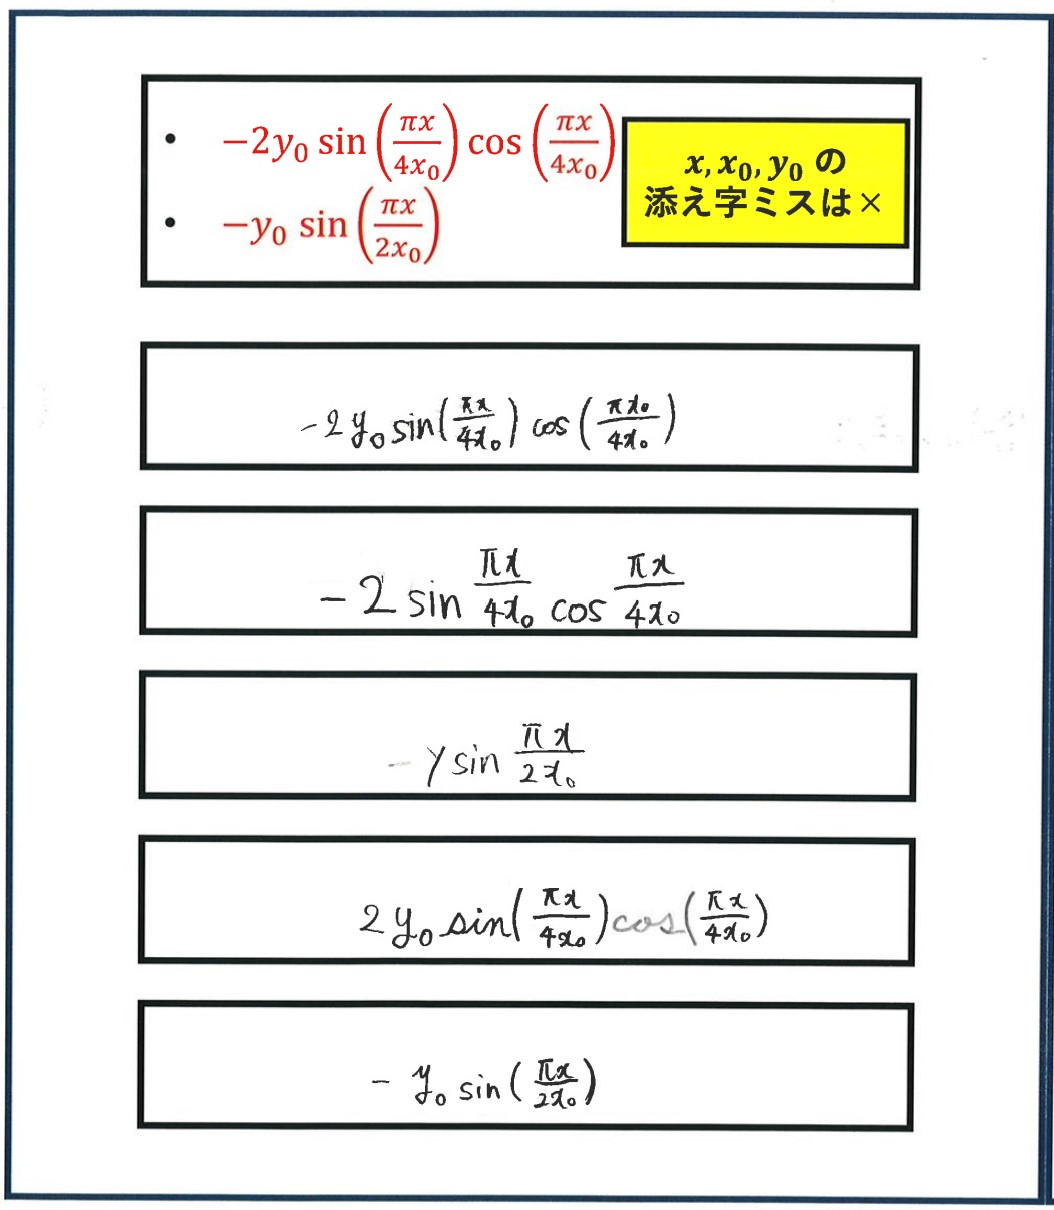 • −2y₀ sin(πx/4x₀) cos(πx/4x₀)
• −y₀ sin(πx/2x₀)
x, x₀, y₀ の
添え字ミスは×
-2y₀ sin(πx/4x₀) cos(πx₀/4x₀)
-2 sin πx/4x₀ cos πx/4x₀
-y sin πx/2x₀
2y₀ sin(πx/4x₀) cos(πx/4x₀)
-y₀ sin(πx/2x₀)